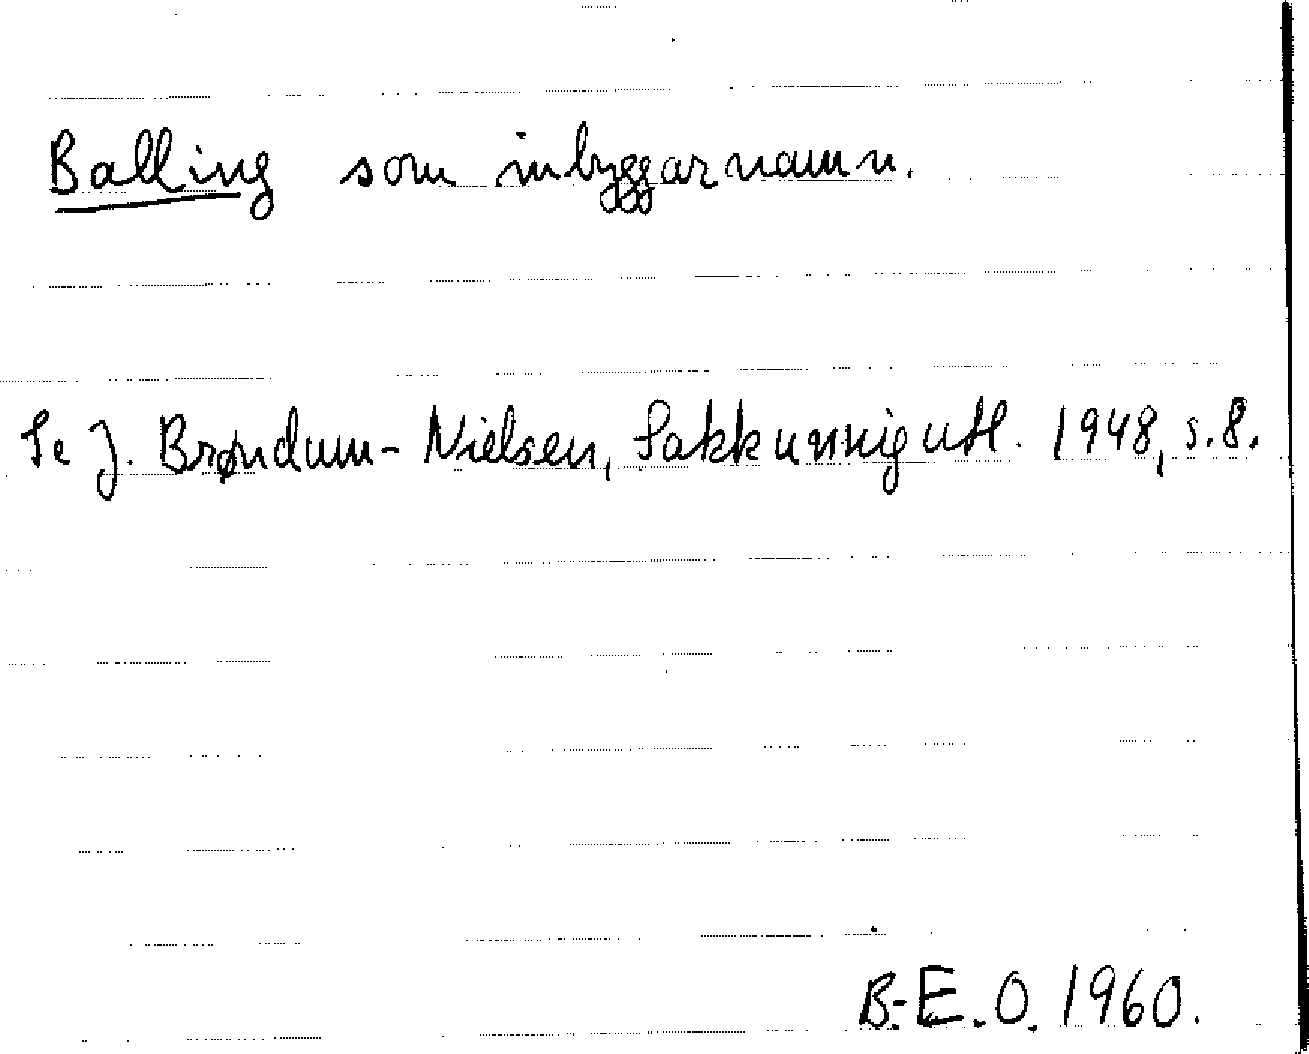 Balling som inbyggarnamn.
Se J. Brøndum-Nielsen, Sakkunnigutl. 1948, s.8.
B.-E.O. 1960.